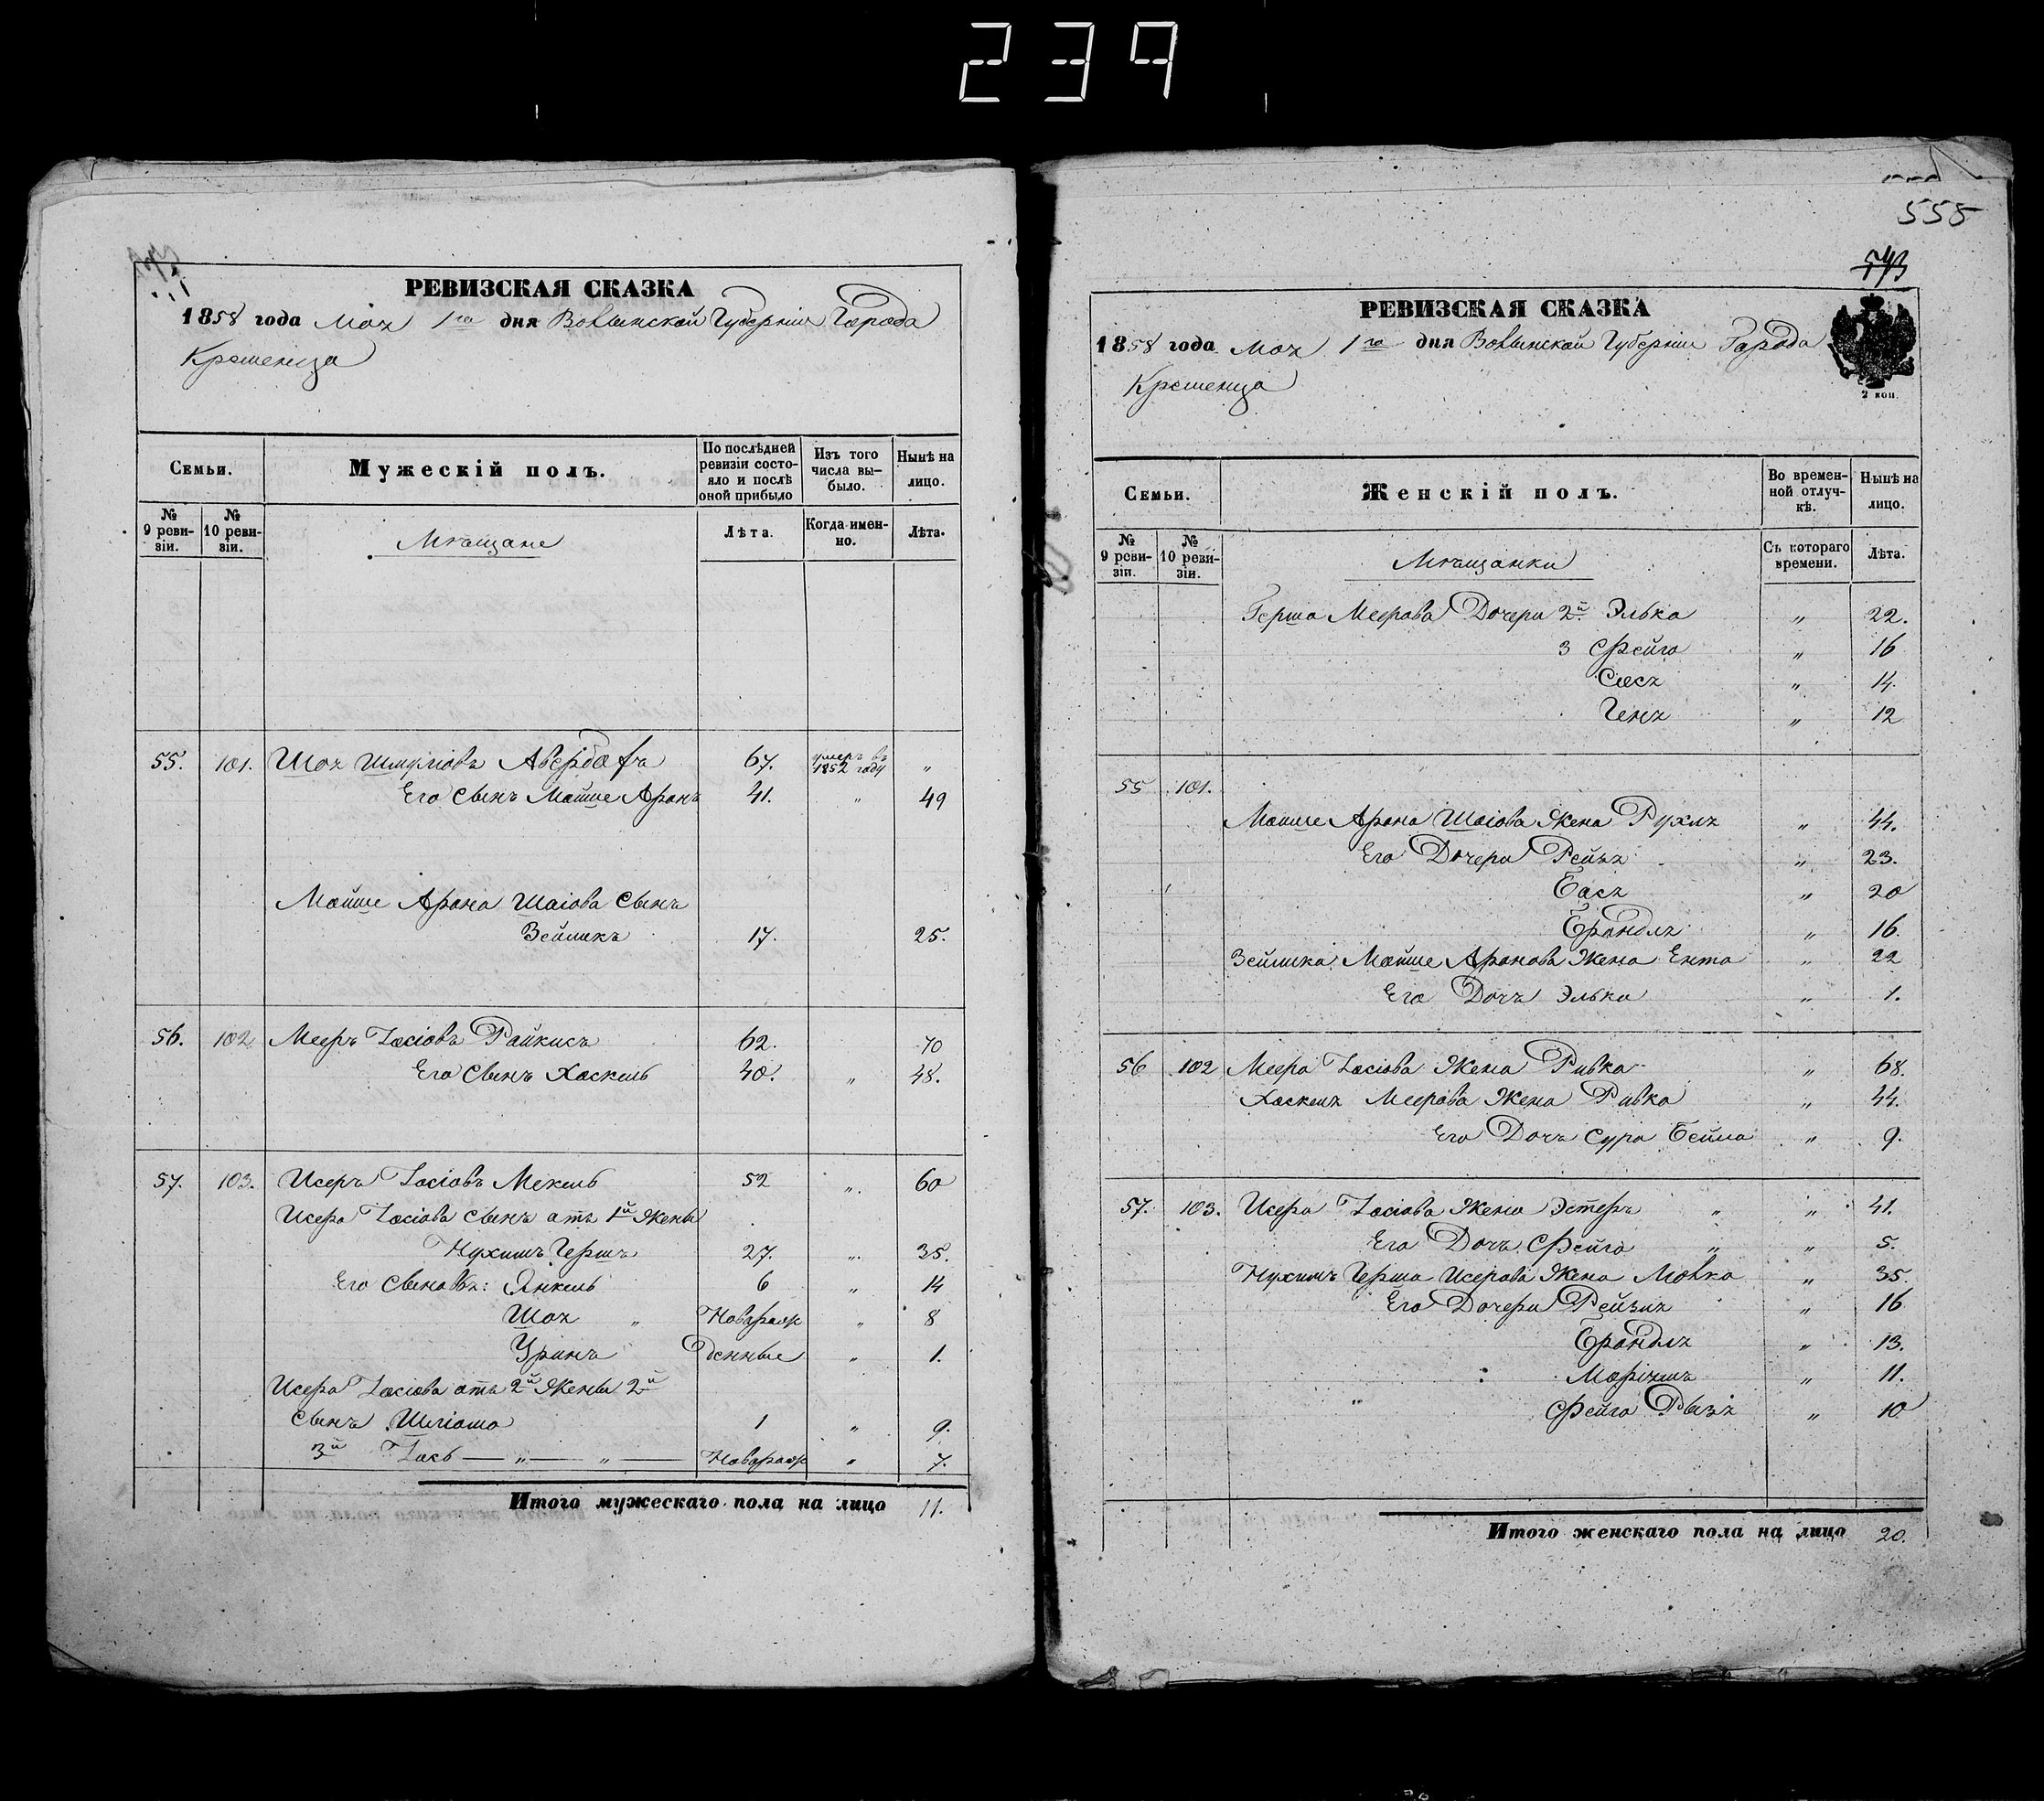 239
РЕВИЗСКАЯ СКАЗКА
1858 года Мая 1го дня Волынской Губерніи Города
Кременца
Семьи.
Мужескій полъ.
По послѣдней ревизіи состояло и послѣ оной прибыло
Изъ того числа выбыло.
Нынѣ на лицо.
№ 9 ревизіи.
№ 10 ревизіи.
Мѣщане
Лѣта.
Когда именно.
Лѣта.
55. 101. Шая Шмулiовъ Авербахъ 67. умеръ въ 1852 году „
Его Сынъ Мойше Аронъ 41. „ 49
Мойше Арона Шаiова Сынъ
Зейликъ 17. 25.
56. 102. Мееръ Iосiовъ Райкисъ 62. 70
Его Сынъ Хаскель 40. „ 48.
57. 103. Исеръ Iосiовъ Мекель 52 „ 60
Исера Iосiова Сынъ отъ 1й Жены
Нухимъ Гершъ 27. „ 35.
Его Сыновья: Янкель 6 „ 14
Шая „ Новорож „ 8
Уринъ денные „ 1.
Исера Iосiова отъ 2й Жены 2й
Сынъ Шлiома 1 „ 9.
3й Iось — „ — „ — Новорож „ 7.
Итого мужескаго пола на лицо 11.
558
593
РЕВИЗСКАЯ СКАЗКА
1858 года Мая 1го дня Волынской Губерніи Города
Кременца
2 коп.
Семьи.
Женскій полъ.
Во временной отлучкѣ.
Нынѣ на лицо.
№ 9 ревизіи.
№ 10 ревизіи.
Мѣщанки
Съ котораго времени.
Лѣта.
Герша Меерова Дочери 2й Элька „ 22.
3 Фейга „ 16
Сося „ 14.
Геня „ 12
55 101.
Мойше Арона Шаiова Жена Рухля „ 44.
Его Дочери Рейзя „ 23.
Бася „ 20
Брандля „ 16.
Зейлика Мойше Аронова Жена Ента „ 22
Его Дочь Элька „ 1.
56 102 Меера Iосiова Жена Ривка „ 68.
Хаскеля Меерова Жена Ривка „ 44.
Его Дочь Сура Бейла „ 9.
57. 103. Исера Iосiова Жена Эстеръ „ „ 41.
Его Дочь Фейга „ „ 5.
Нухимъ Герша Исерова Жена Малка „ 35.
Его Дочери Рейзля „ 16
Брандля „ 13.
Марiямъ „ 11.
„ Фейга Рызя „ 10
Итого женскаго пола на лицо 20.